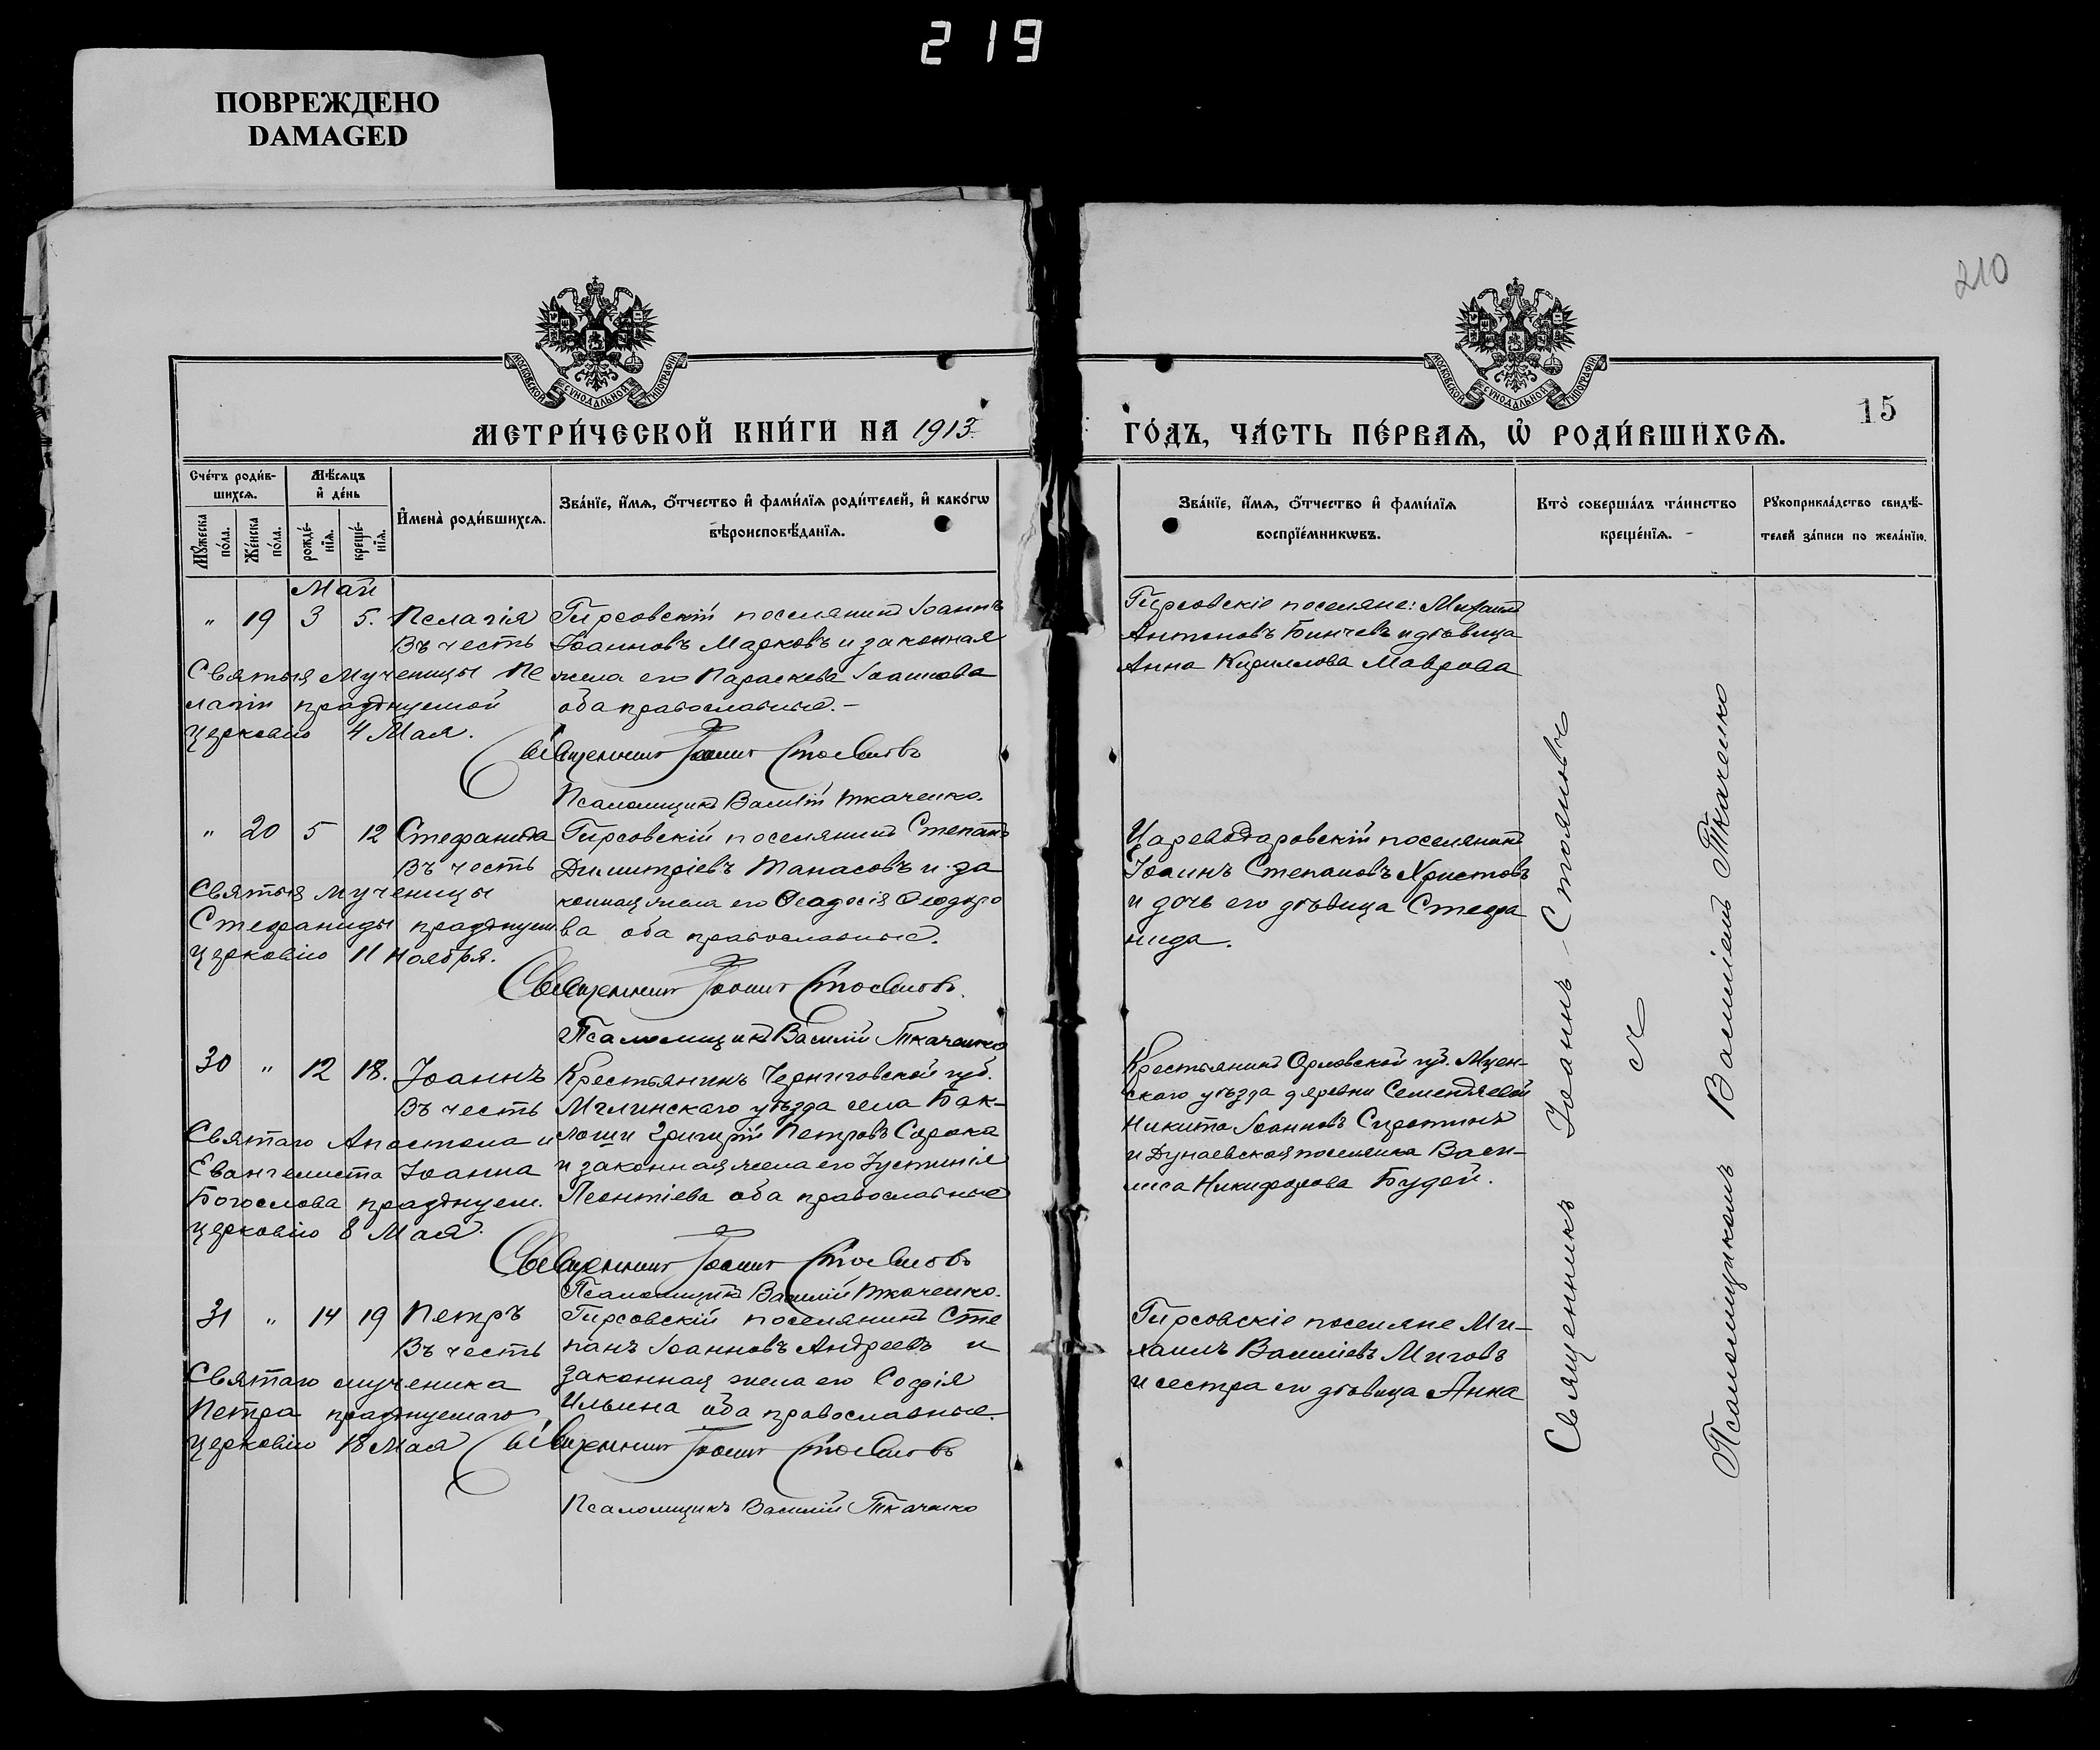 219
ПОВРЕЖДЕНО
DAMAGED
210
МОСКОВСКОЙ СѴНОДАЛЬНОЙ ТИПОГРАФІИ
МОСКОВСКОЙ СѴНОДАЛЬНОЙ ТИПОГРАФІИ
15
МЕТРИ́ЧЕСКОЙ КНИ́ГИ НА 1913
ГО́ДЪ, ЧА́СТЬ ПЕ́РВАѦ, Ѡ҆ РОДИ́ВШИХСѦ.
Сче́тъ роди́в-
шихсѧ.
Мѣ́сѧцъ
и҆ де́нь
Мꙋ́жеска
по́ла.
Же́нска
по́ла.
рожде́-
нїѧ.
креще́-
нїѧ.
И҆мена̀ роди́вшихсѧ.
Зва́нїе, и҆́мѧ, ѻ҆́тчество и҆ фами́лїѧ роди́телей, и҆ како́гѡ
вѣроисповѣ́данїѧ.
Зва́нїе, и҆́мѧ, ѻ҆́тчество и҆ фами́лїѧ
воспрїе́мникѡвъ.
Кто̀ соверша́лъ та́инство
креще́нїѧ.
Рꙋкоприкла́дство свидѣ́-
телей за́писи по жела́нїю.
Май
" 19 3 5. Пелагія
Въ честь
Святыя Мученицы Пе
лагіи празднуемой
Церковію 4 Мая.
Гирсовскій поселянинъ Іоаннъ
Іоанновъ Марковъ и законная
жена его Параскева Іоаннова
оба православные.-
Священникъ Іоаннъ Стояновъ
Псаломщикъ Василій Ткаченко.
Гирсовскіе поселяне: Михаилъ
Антоновъ Бинчевъ и дѣвица
Анна Кириллова Маврова
" 20 5 12 Стефанида
Въ честь
Святыя мученицы
Стефаниды празднуем.
Церковію 11 Ноября.
Гирсовскій поселянинъ Степанъ
Димитріевъ Танасовъ и за
конная жена его Ѳеодосія Ѳеодоро
ва оба православные.
Священникъ Іоаннъ Стояновъ.
Псаломщикъ Василій Ткаченко
Цареводаровскій поселянинъ
Іоаннъ Степановъ Христовъ
и дочь его дѣвица Стефа
нида.
30 " 12 18. Іоаннъ
Въ честь
Святаго Апостола и
Евангелиста Іоанна
Богослова празднуем.
Церковію 8 Мая.
Крестьянинъ Черниговской губ.
Мглинскаго уѣзда села Бак-
лани Григорій Петровъ Сорока
и законная жена его Іустинія
Леонтіева оба православные
Священникъ Іоаннъ Стояновъ
Псаломщикъ Василій Ткаченко.
Крестьянинъ Орловской губ. Мцен-
скаго уѣзда деревни Семендяевой
Никита Іоанновъ Сиротинъ
и Дунаевская поселянка Васи-
лиса Никифорова Будей.
31 " 14 19 Петръ
Въ честь
Святаго мученика
Петра празднуемаго
Церковію 18 Мая
Гирсовскій поселянинъ Сте
панъ Іоанновъ Андреевъ и
законная жена его Софія
Ильина оба православные.
Священникъ Іоаннъ Стояновъ
Псаломщикъ Василій Ткаченко
Гирсовскіе поселяне Ми-
хаилъ Василіевъ Миговъ
и сестра его дѣвица Анна
Священникъ Іоаннъ Стояновъ
съ
Псаломщикомъ Василіемъ Ткаченко